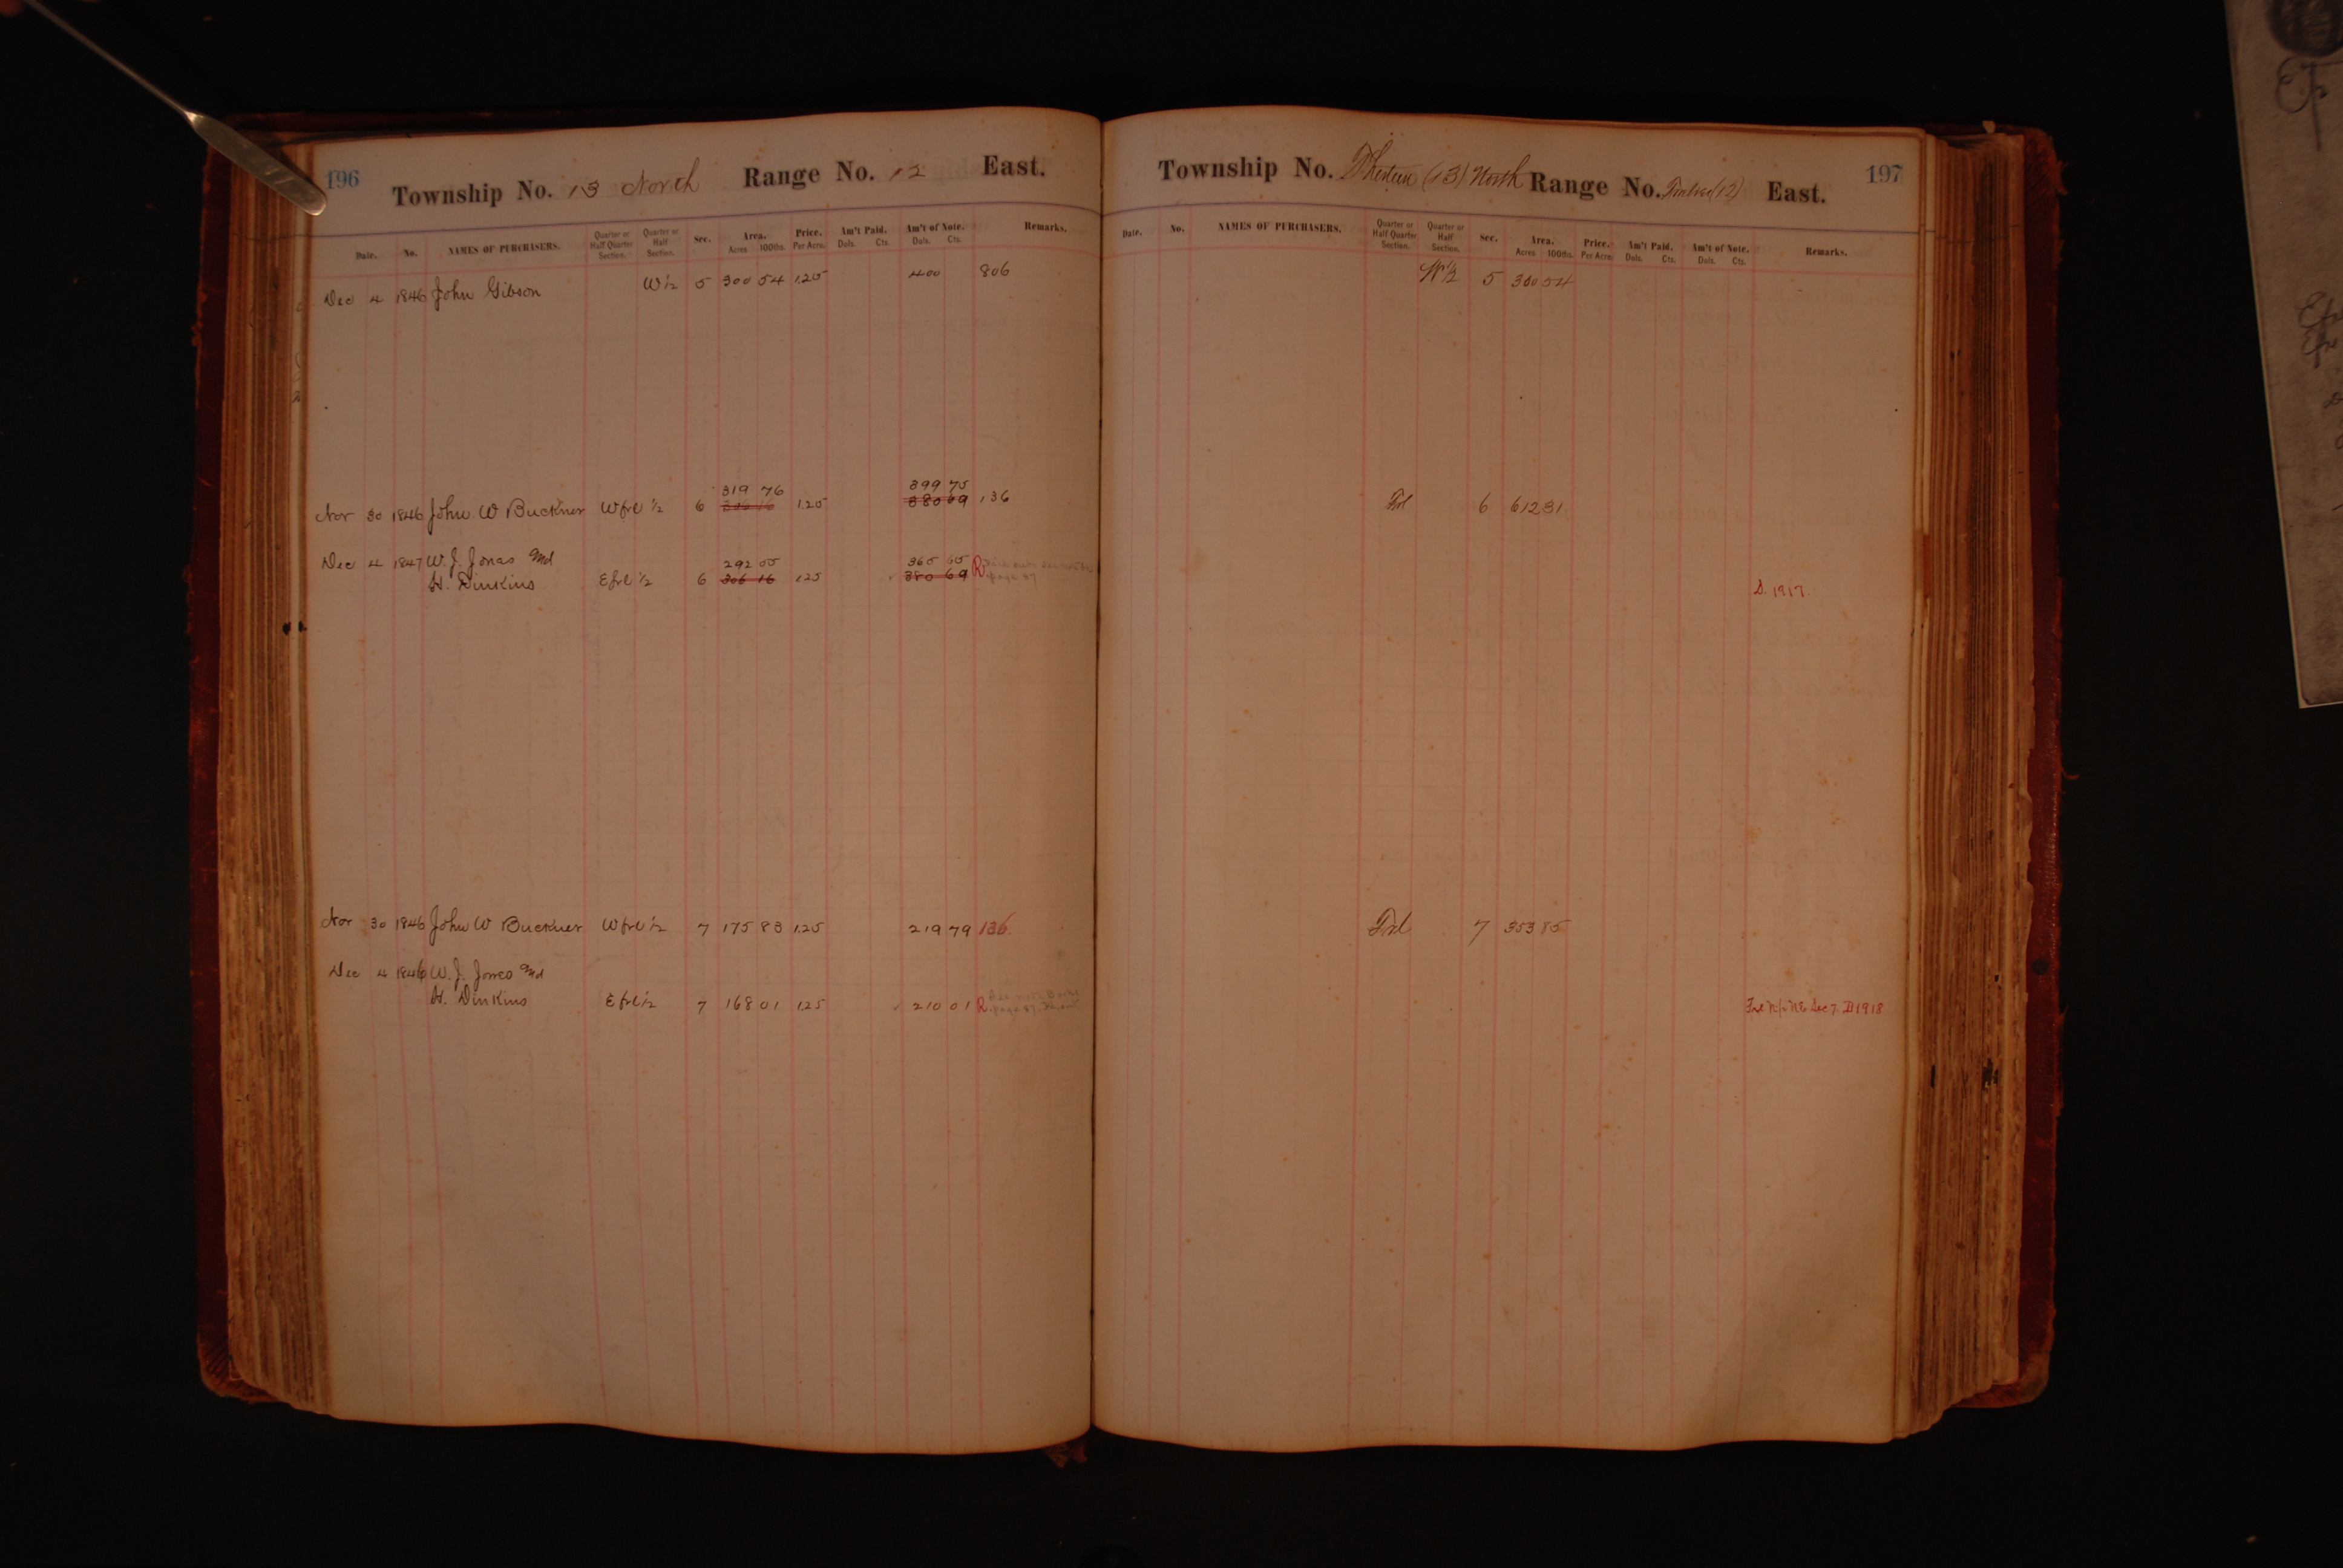 196
Township No. 13 North Range No. 12 East.
Date. No. NAMES OF PURCHASERS. Quarter or Half Quarter Section. Quarter or Half Section. Sec. Area. Acres 100ths. Price. Per Acre. Am't Paid. Dols. Cts. Am't of Note. Dols. Cts. Remarks.
Dec 4 1846 John Gibson W½ 5 300 54 1.25 400 806
319 76 399 75
Nov 30 1846 John W Buckner Wfrl ½ 6 306 16 1.25 380 69 136
Dec 4 1847 W. J. Jonas and 292 55 365 65
H. Dinkins Efrl ½ 6 306 16 1.25 380 69 R
Nov 30 1846 John W Buckner Wfrl ½ 7 175 83 1.25 219 79 136
Dec 4 1846 W. J. Jones and
H. Dinkins Efrl ½ 7 168 01 1.25 210 01 R.
197
Township No. Thirteen (13) North Range No. Twelve (12) East.
Date. No. NAMES OF PURCHASERS. Quarter or Half Quarter Section. Quarter or Half Section. Sec. Area. Acres 100ths. Price. Per Acre. Am't Paid. Dols. Cts. Am't of Note. Dols. Cts. Remarks.
W½ 5 300 54
Frl 6 612 31
D. 1917.
Frl 7 353 85
Sec 7. D 1918